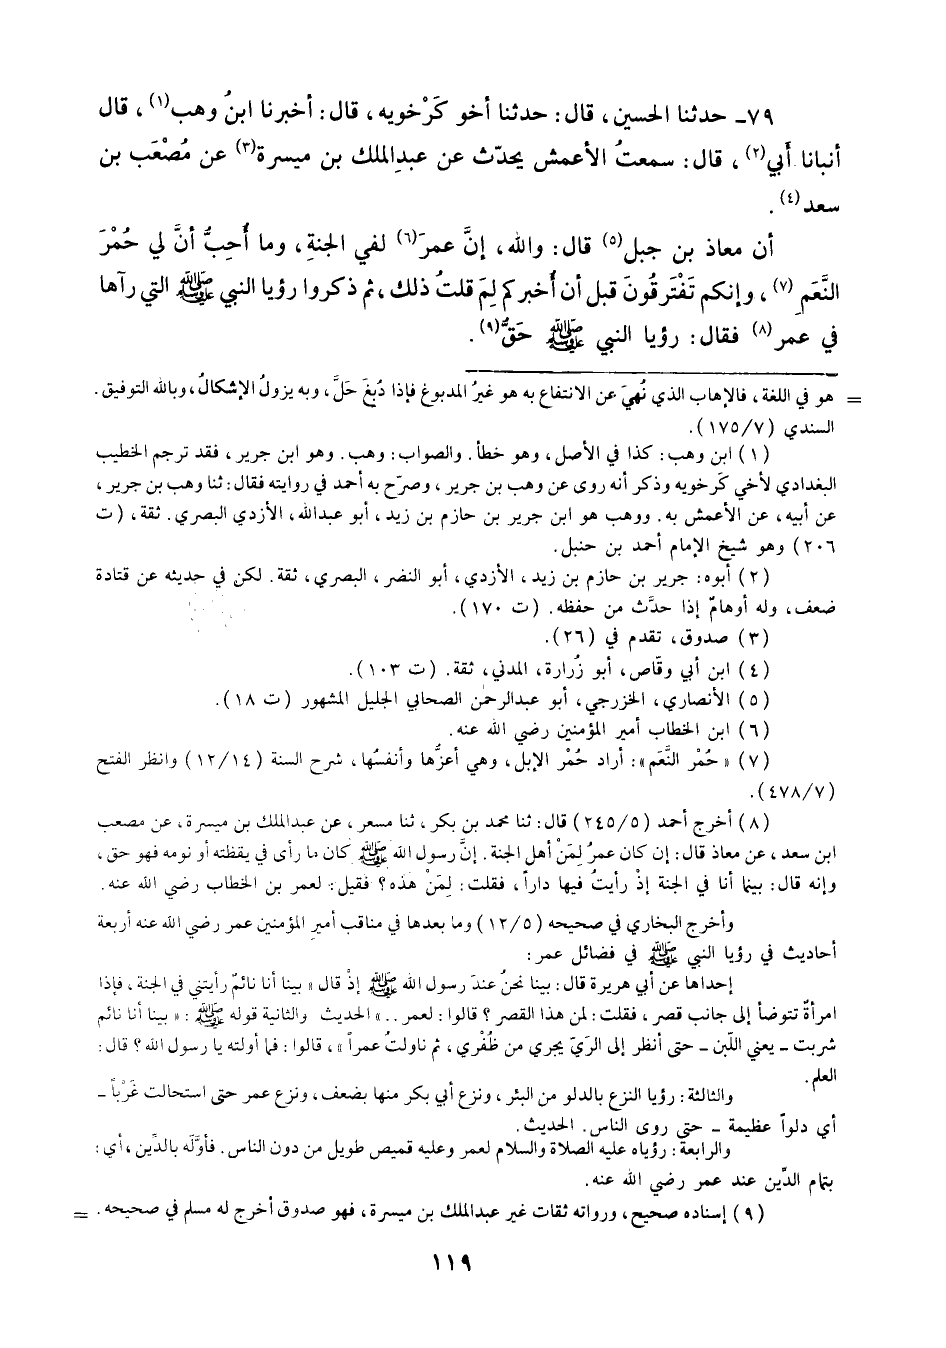 ٧٩ـ حدثنا الحسين، قال: حدثنا أخو كَرْخويه، قال: أخبرنا ابنُ وهب(١)، قال
أنبانا أَبي(٢)، قال: سمعتُ الأعمش يحدّث عن عبدالملك بن ميسرة(٣) عن مُصْعَب بن
سعد(٤).
أن معاذ بن جبل(٥) قال: والله، إنَّ عمرَ(٦) لفي الجنةِ، وما أُحِبُّ أنَّ لي حُمْرَ
النَّعَمِ(٧)، وإنكم تَفْتَرقُونَ قبل أن أُخبركم لِمَ قلتُ ذلك، ثم ذكروا رؤيا النبي ﷺ التي رآها
في عمر(٨) فقال: رؤيا النبي ﷺ حَقٌّ(٩).
= هو في اللغة، فالإهاب الذي نُهيَ عن الانتفاع به هو غيرُ المدبوغ فإذا دُبغَ حَلَّ، وبه يزولُ الإشكالُ، وبالله التوفيق.
السندي (١٧٥/٧).
(١) ابن وهب: كذا في الأصل، وهو خطأ. والصواب: وهب. وهو ابن جرير، فقد ترجم الخطيب
البغدادي لأخي كَرخويه وذكر أنه روى عن وهب بن جرير، وصرّح به أحمد في روايته فقال: ثنا وهب بن جرير،
عن أبيه، عن الأعمش به. ووهب هو ابن جرير بن حازم بن زيد، أبو عبدالله، الأزدي البصري. ثقة، (ت
٢٠٦) وهو شيخ الإمام أحمد بن حنبل.
(٢) أبوه: جرير بن حازم بن زيد، الأزدي، أبو النضر، البصري، ثقة. لكن في حديثه عن قتادة
ضعف، وله أوهامٌ إذا حدَّث من حفظه. (ت ١٧٠).
(٣) صدوق، تقدم في (٢٦).
(٤) ابن أبي وقّاص، أبو زُرارة، المدني، ثقة. (ت ١٠٣).
(٥) الأنصاري، الخزرجي، أبو عبدالرحمٰن الصحابي الجليل المشهور (ت ١٨).
(٦) ابن الخطاب أمير المؤمنين رضي الله عنه.
(٧) «حُمْر النَّعَم»: أراد حُمْر الإبل، وهي أعزُّها وأنفسُها، شرح السنة (١٢/١٤) وانظر الفتح
(٤٧٨/٧).
(٨) أخرج أحمد (٢٤٥/٥) قال: ثنا محمد بن بكر، ثنا مسعر، عن عبدالملك بن ميسرة، عن مصعب
ابن سعد، عن معاذ قال: إن كان عمرُ لمَنْ أهل الجنة. إنَّ رسول الله ﷺ كان ما رأى في يقظته أو نومه فهو حق،
وإنه قال: بينما أنا في الجنة إذْ رأيتُ فيها داراً، فقلت: لِمَنْ هذه؟ فقيل: لعمر بن الخطاب رضي الله عنه.
وأخرج البخاري في صحيحه (١٢/٥) وما بعدها في مناقب أمير المؤمنين عمر رضي الله عنه أربعة
أحاديث في رؤيا النبي ﷺ في فضائل عمر:
إحداها عن أبي هريرة قال: بينا نحنُ عندَ رسول الله ﷺ إذْ قال «بينا أنا نائمٌ رأيتني في الجنة، فإذا
امرأةٌ تتوضأ إلى جانب قصر، فقلت: لمن هذا القصر؟ قالوا: لعمر..» الحديث والثانية قوله ﷺ: «بينا أنا نائم
شربت ـ يعني اللّبن ـ حتى أنظر إلى الرّيّ يجري من ظُفْري، ثم ناولتُ عمراً»، قالوا: فما أولته يا رسول الله؟ قال:
العلم.
والثالثة: رؤيا النزع بالدلو من البئر، ونزع أبي بكر منها بضعف، ونزع عمر حتى استحالت غَرْباً ـ
أي دلواً عظيمة ـ حتى روى الناس. الحديث.
والرابعة: رؤياه عليه الصلاة والسلام لعمر وعليه قميص طويل من دون الناس. فأوَّله بالدِّين، أي:
بتمام الدِّين عند عمر رضي الله عنه.
(٩) إسناده صحيح، ورواته ثقات غير عبدالملك بن ميسرة، فهو صدوق أخرج له مسلم في صحيحه. =
١١٩